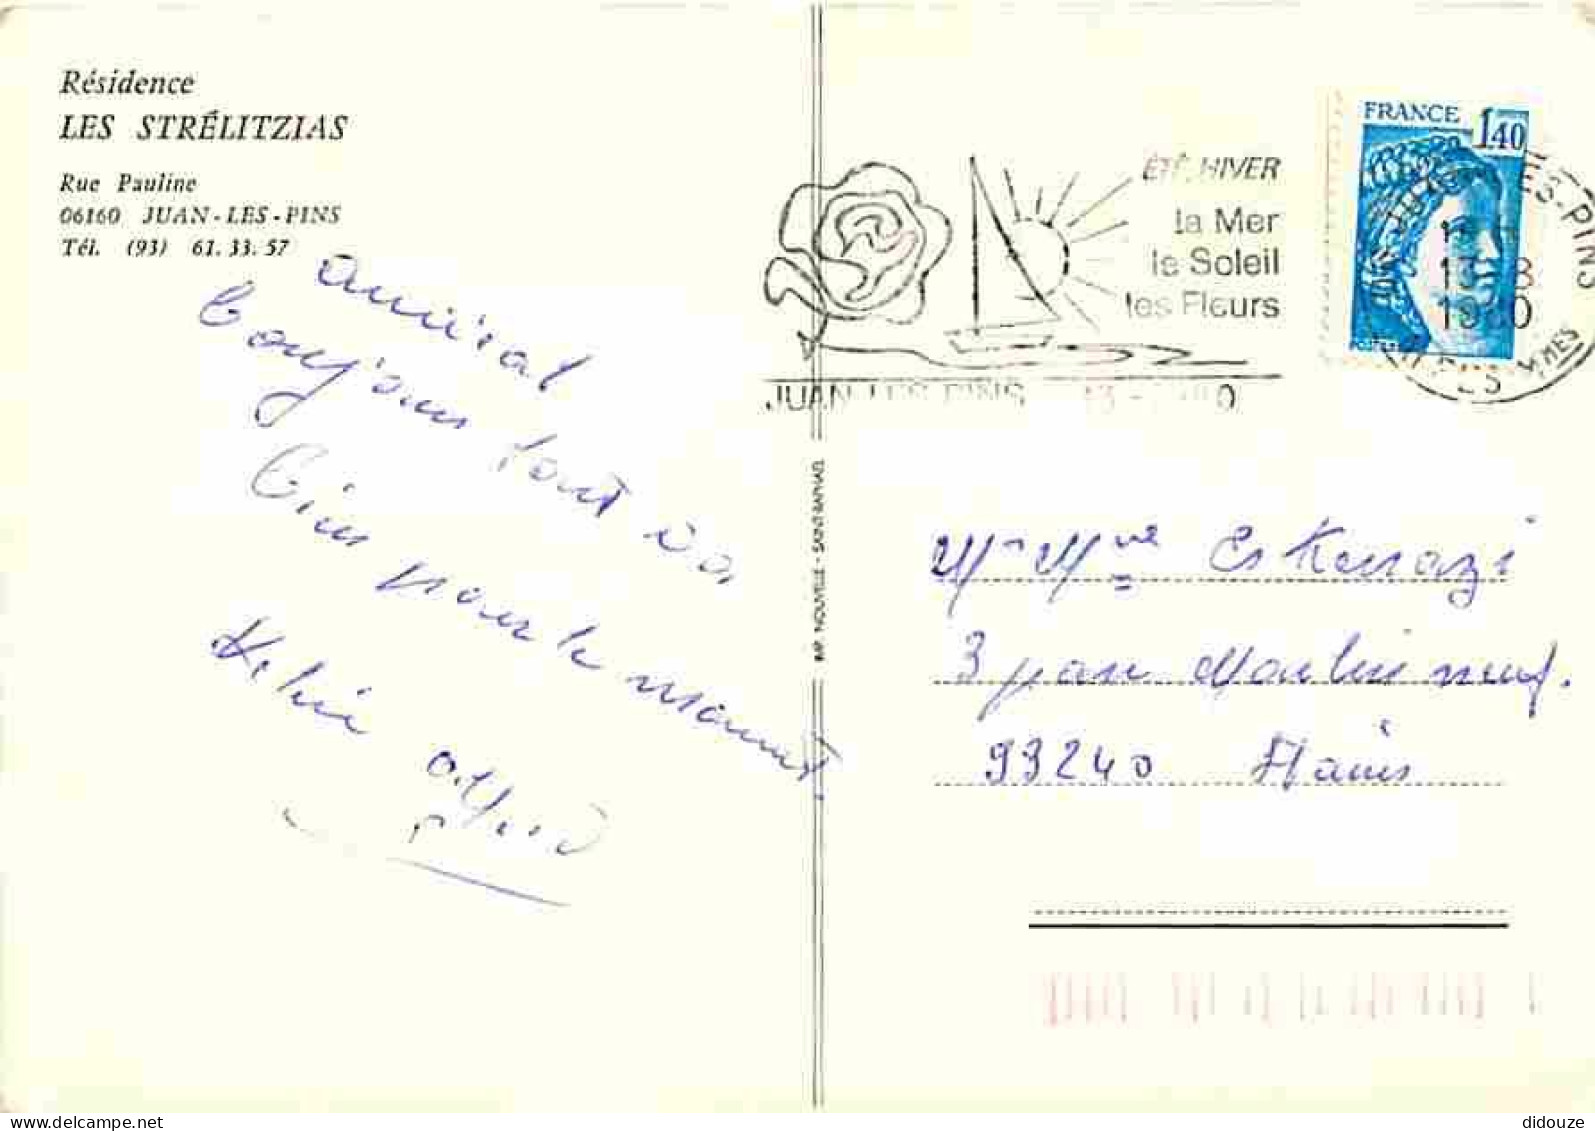 Résidence
LES STRÉLITZIAS
Rue Pauline
06160 JUAN-LES-PINS
Tél. (93) 61.33.57
amical
bonjour tout va
bien pour le moment.
ÉTÉ, HIVER
la Mer
le Soleil
les Fleurs
JUAN LES PINS
FRANCE 1,40
13-8
1980
IMP. NOUVELLE - SAINT-RAPHAEL
Mr Mme Eskenazi
3 Moulin neuf.
93240 Stains
delcampe.net
didouze